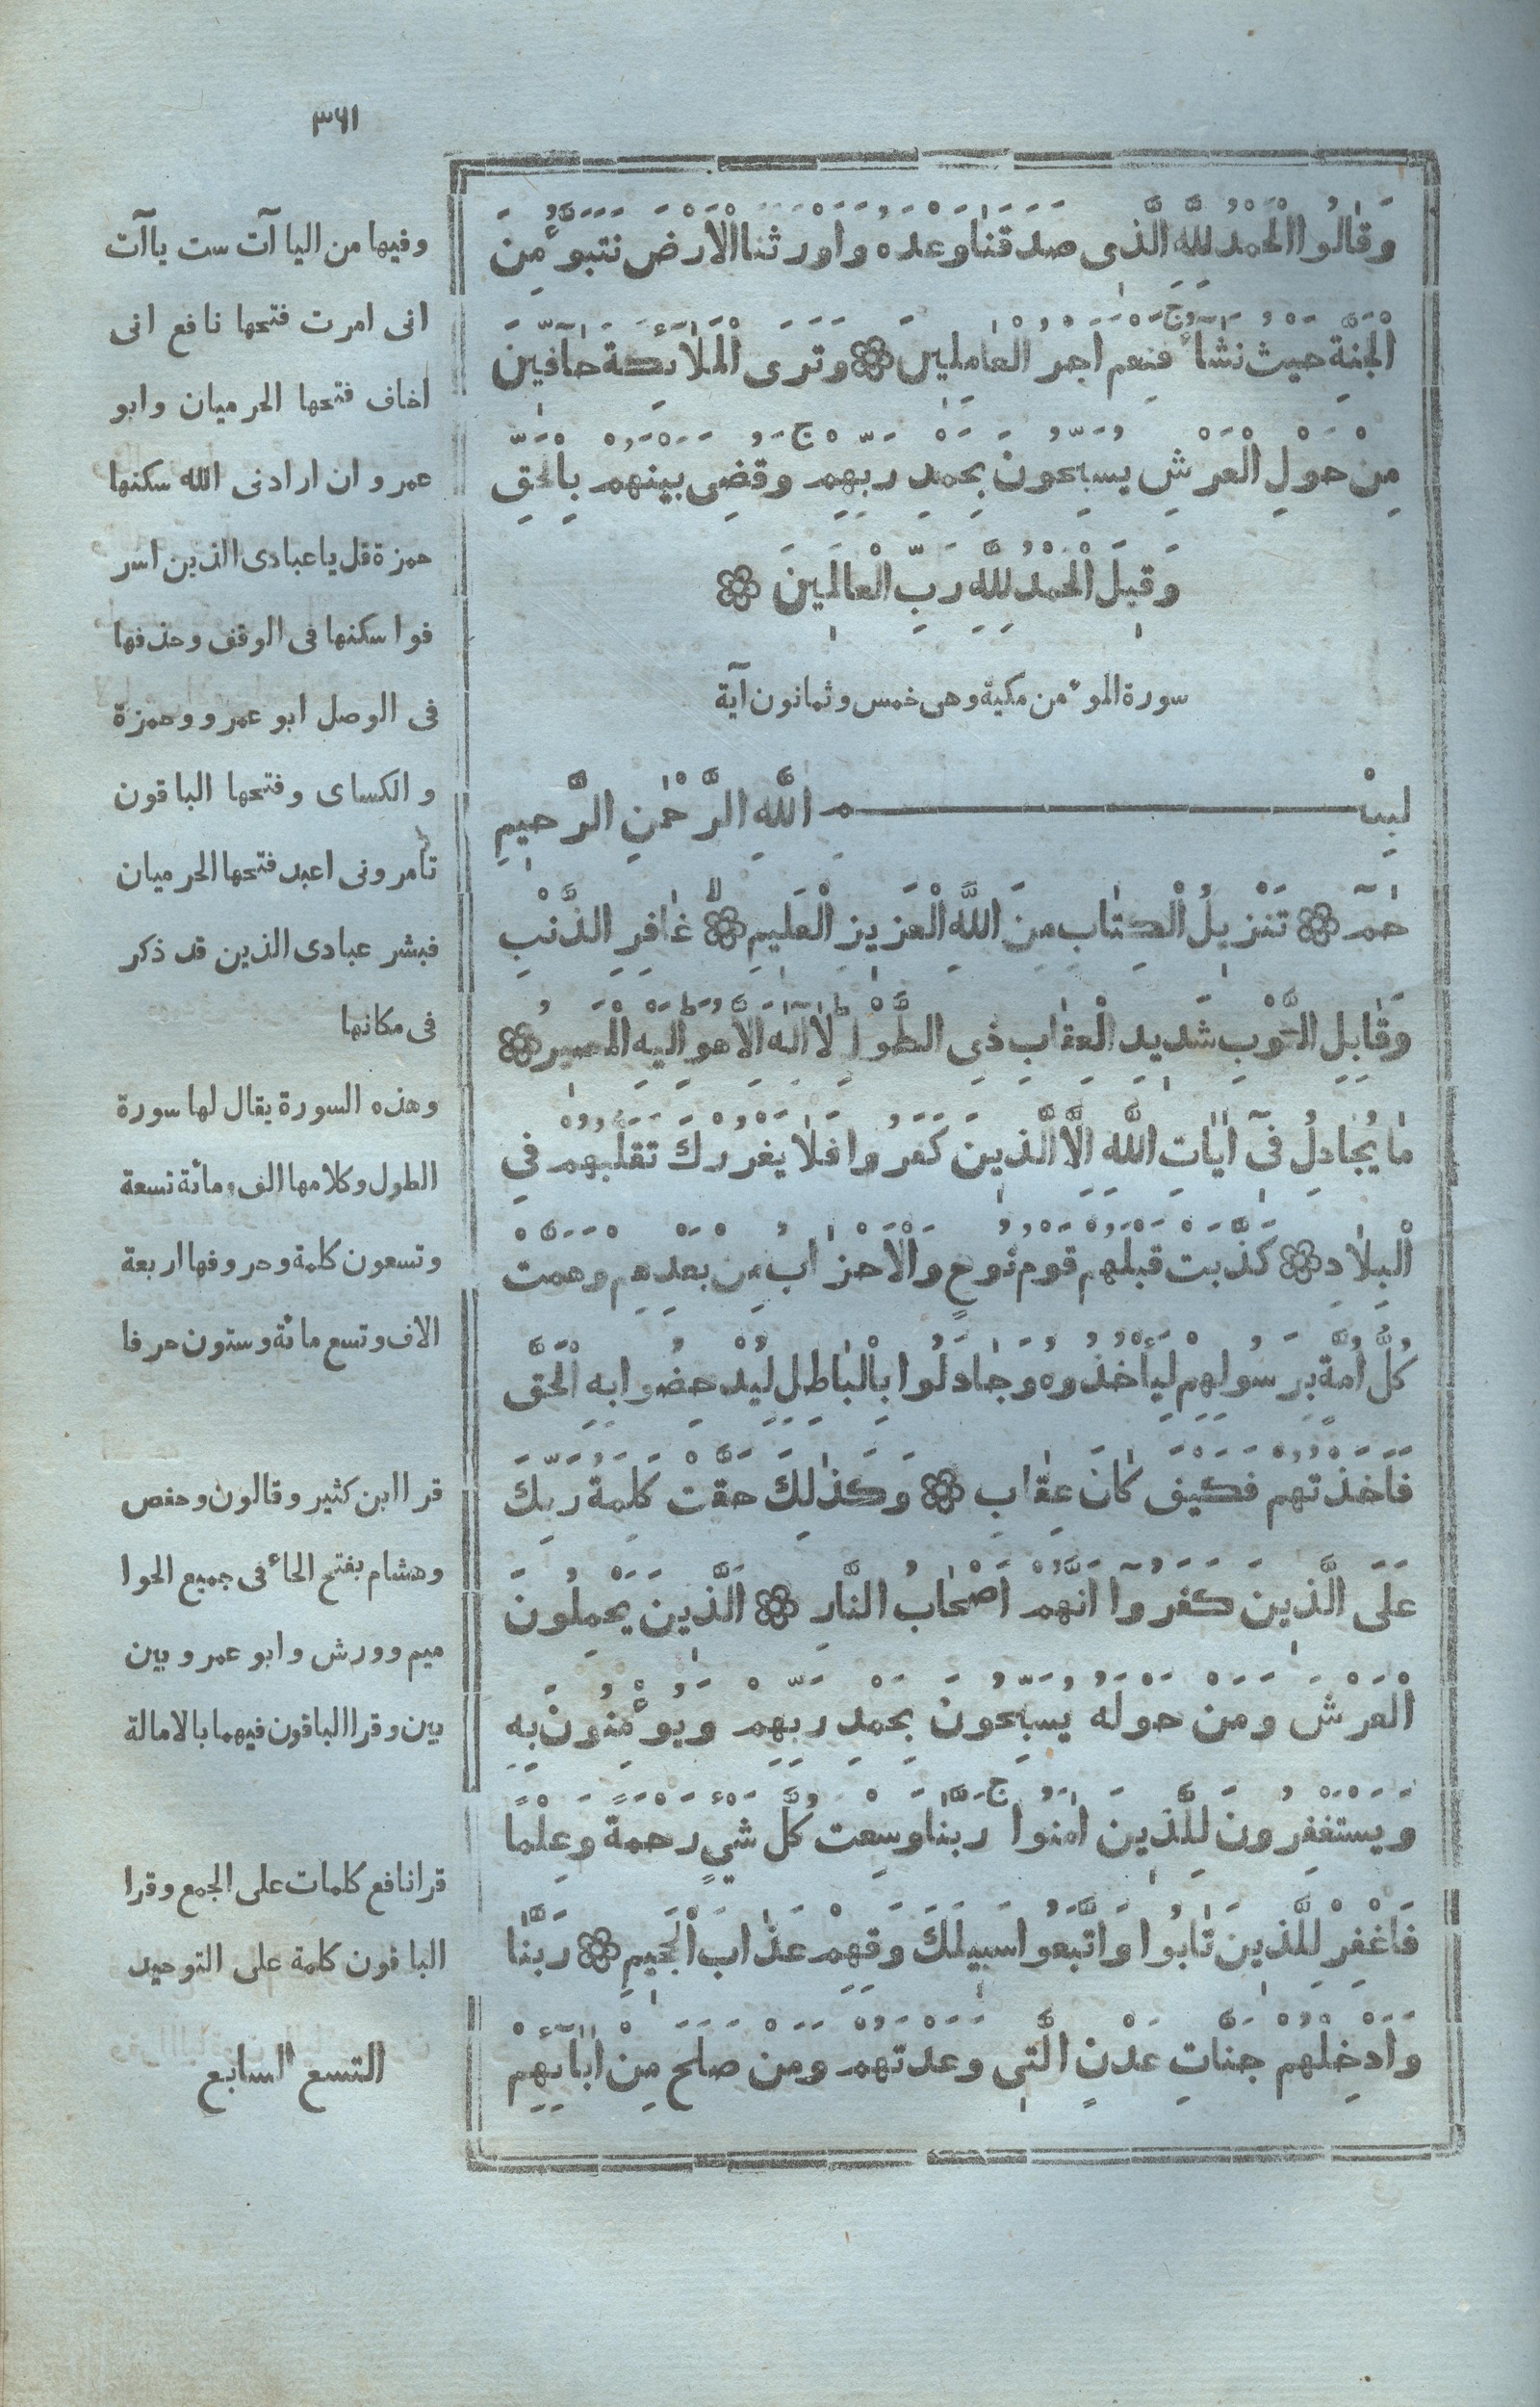 ٣٦١
وَقَالُوا الْحَمْدُ لِلَّهِ الَّذِى صَدَقَنَا وَعْدَهُ وَاَوْرَثَنَا الْاَرْضَ نَتَبَوَّءُ مِنَ
الْجَنَّةِ حَيْثُ نَشَآءُ ج فَنِعْمَ اَجْرُ الْعَامِلِينَ ۞ وَتَرَى الْمَلَآئِكَةَ حَآفِّينَ
مِنْ حَوْلِ الْعَرْشِ يُسَبِّحُونَ بِحَمْدِ رَبِّهِمْ ج وَقُضِىَ بَيْنَهُمْ بِالْحَقِّ
وَقِيلَ الْحَمْدُ لِلَّهِ رَبِّ الْعَالَمِينَ ۞
سورة المؤمن مكية وهى خمس وثمانون آية
بِسْمِ اللَّهِ الرَّحْمٰنِ الرَّحِيمِ
حٰمٓ ۞ تَنْزِيلُ الْكِتَابِ مِنَ اللَّهِ الْعَزِيزِ الْعَلِيمِ ۞ لا غَافِرِ الذَّنْبِ
وَقَابِلِ التَّوْبِ شَدِيدِ الْعِقَابِ ذِى الطَّوْلِ ط لَآ اِلٰهَ اِلَّا هُوَ ط اِلَيْهِ الْمَصِيرُ ۞
مَا يُجَادِلُ فِىٓ اٰيَاتِ اللَّهِ اِلَّا الَّذِينَ كَفَرُوا فَلَا يَغْرُرْكَ تَقَلُّبُهُمْ فِى
الْبِلَادِ ۞ كَذَّبَتْ قَبْلَهُمْ قَوْمُ نُوحٍ وَالْاَحْزَابُ مِنْ بَعْدِهِمْ وَهَمَّتْ
كُلُّ اُمَّةٍ بِرَسُولِهِمْ لِيَأْخُذُوهُ وَجَادَلُوا بِالْبَاطِلِ لِيُدْحِضُوا بِهِ الْحَقَّ
فَاَخَذْتُهُمْ فَكَيْفَ كَانَ عِقَابِ ۞ وَكَذٰلِكَ حَقَّتْ كَلِمَةُ رَبِّكَ
عَلَى الَّذِينَ كَفَرُوٓا اَنَّهُمْ اَصْحَابُ النَّارِ ۞ اَلَّذِينَ يَحْمِلُونَ
الْعَرْشَ وَمَنْ حَوْلَهُ يُسَبِّحُونَ بِحَمْدِ رَبِّهِمْ وَيُؤْمِنُونَ بِهِ
وَيَسْتَغْفِرُونَ لِلَّذِينَ اٰمَنُوا ج رَبَّنَا وَسِعْتَ كُلَّ شَىْءٍ رَحْمَةً وَعِلْمًا
فَاغْفِرْ لِلَّذِينَ تَابُوا وَاتَّبَعُوا سَبِيلَكَ وَقِهِمْ عَذَابَ الْجَحِيمِ ۞ رَبَّنَا
وَاَدْخِلْهُمْ جَنَّاتِ عَدْنٍ الَّتِى وَعَدْتَهُمْ وَمَنْ صَلَحَ مِنْ اٰبَآئِهِمْ
وفيها من الياآت ست ياآت
انى امرت فتحها نافع انى
اخاف فتحها الحرميان وابو
عمرو ان ارادنى الله سكنها
حمزة قل يا عبادى الذين اسر
فوا سكنها فى الوقف وحذفها
فى الوصل ابو عمرو وحمزة
والكساى وفتحها الباقون
تأمرونى اعبد فتحها الحرميان
فبشر عبادى الذين قد ذكر
فى مكانها
وهذه السورة يقال لها سورة
الطول وكلامها الف ومائة تسعة
وتسعون كلمة وحروفها اربعة
الاف وتسع مائة وستون حرفا
قرا ابن كثير وقالون وحفص
وهشام بفتح الحاء فى جميع الحوا
ميم وورش وابو عمرو بين
بين وقرا الباقون فيهما بالامالة
قرا نافع كلمات على الجمع وقرا
الباقون كلمة على التوحيد
التسع السابع